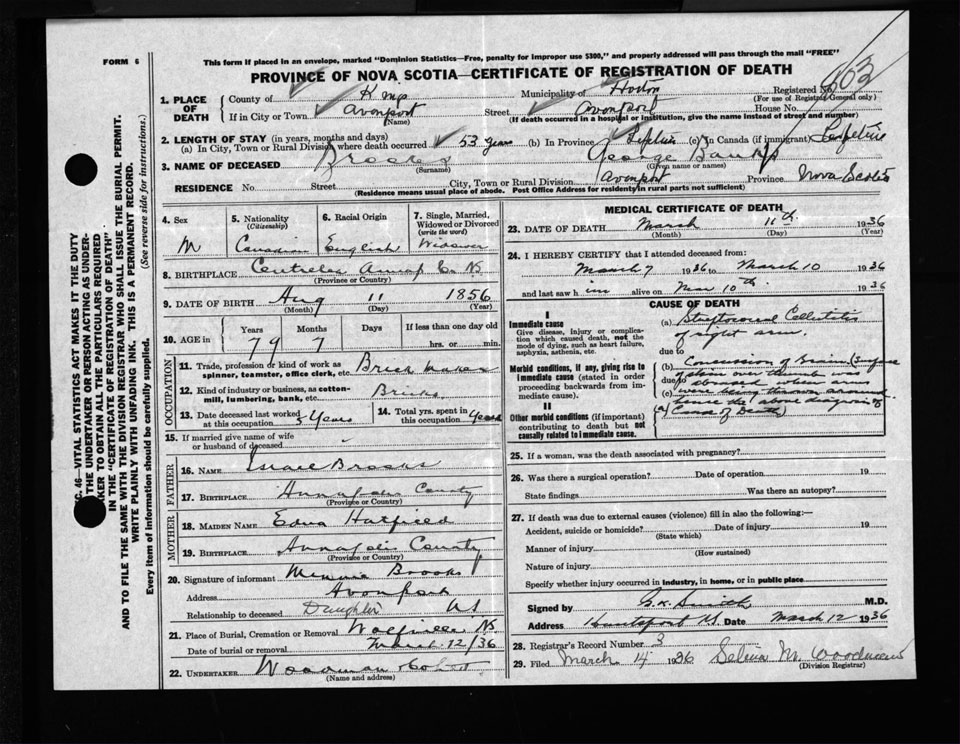 FORM 6
This form if placed in an envelope, marked "Dominion Statistics—Free, penalty for improper use $300," and properly addressed will pass through the mail "FREE"
PROVINCE OF NOVA SCOTIA—CERTIFICATE OF REGISTRATION OF DEATH
1. PLACE OF DEATH
County of Kings Municipality of Horton Registered No.
(For use of Registrar General only)
If in City or Town Avonport Street Avonport House No.
(Name) (If death occurred in a hospital or institution, give the name instead of street and number)
2. LENGTH OF STAY (in years, months and days)
(a) In City, Town or Rural Division where death occurred 53 years (b) In Province Lifetime (c) In Canada (if immigrant) Lifetime
3. NAME OF DECEASED Brooks George
(Surname) (Given name or names)
RESIDENCE No. Street City, Town or Rural Division Avonport Province Nova Scotia
(Residence means usual place of abode. Post Office Address for residents in rural parts not sufficient)
4. Sex M
5. Nationality (Citizenship) Canadian
6. Racial Origin English
7. Single, Married, Widowed or Divorced (write the word) Widower
8. BIRTHPLACE
(Province or Country)
9. DATE OF BIRTH Aug 11 1856
(Month) (Day) (Year)
10. AGE in Years Months Days If less than one day old
79 7 hrs. or min.
OCCUPATION
11. Trade, profession or kind of work as spinner, teamster, office clerk, etc. Brick maker
12. Kind of industry or business, as cotton-mill, lumbering, bank, etc. Bricks
13. Date deceased last worked at this occupation 3 years
14. Total yrs. spent in this occupation
15. If married give name of wife or husband of deceased
FATHER
16. NAME Israel Brooks
17. BIRTHPLACE Annapolis County
(Province or Country)
MOTHER
18. MAIDEN NAME Edna Hatfield
19. BIRTHPLACE Annapolis County
(Province or Country)
20. Signature of informant Minnie Brooks
Address Avonport
Relationship to deceased Daughter
21. Place of Burial, Cremation or Removal Wolfville NS
Date of burial or removal 12/36
22. UNDERTAKER Woodman
(Name and address)
MEDICAL CERTIFICATE OF DEATH
23. DATE OF DEATH March 11th 1936
(Month) (Day) (Year)
24. I HEREBY CERTIFY that I attended deceased from
March 7 1936 to March 10 1936
and last saw him alive on Mar 10th 1936
CAUSE OF DEATH
I
Immediate cause
Give disease, injury or complication which caused death, not the mode of dying, such as heart failure, asphyxia, asthenia, etc.
(a) Streptococcal Cellulitis
of right arm.
due to
Morbid conditions, if any, giving rise to immediate cause (stated in order proceeding backwards from immediate cause).
(b) Concussion of Brain
due to
(c)
hence the above diagnosis of
(a) Cause of Death)
II
Other morbid conditions (if important) contributing to death but not causally related to immediate cause.
25. If a woman, was the death associated with pregnancy?
26. Was there a surgical operation? Date of operation 19
State findings Was there an autopsy?
27. If death was due to external causes (violence) fill in also the following:—
Accident, suicide or homicide? Date of injury 19
(State which)
Manner of injury
(How sustained)
Nature of injury
Specify whether injury occurred in industry, in home, or in public place
Signed by Smith M.D.
Address Hantsport Date March 12 1936
28. Registrar's Record Number 3
29. Filed March 14 1936 Selina M. Woodman
(Division Registrar)
SEC. 46—VITAL STATISTICS ACT MAKES IT THE DUTY
OF THE UNDERTAKER OR PERSON ACTING AS UNDER-
TAKER TO OBTAIN ALL THE PARTICULARS REQUIRED
IN THE "CERTIFICATE OF REGISTRATION OF DEATH"
AND TO FILE THE SAME WITH THE DIVISION REGISTRAR WHO SHALL ISSUE THE BURIAL PERMIT.
WRITE PLAINLY WITH UNFADING INK. THIS IS A PERMANENT RECORD.
Every item of information should be carefully supplied. (See reverse side for instructions.)